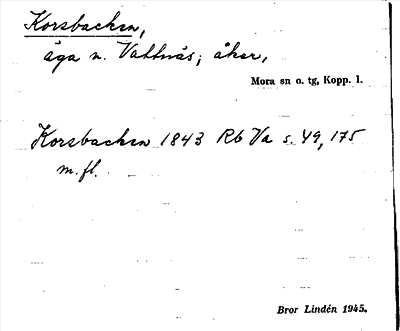 Korsbacken,
äga n. Vattnäs; åker,
Mora sn o. tg, Kopp. l.
Korsbacken 1843 Rb Va s. 49, 175
m.fl.
Bror Lindén 1945.